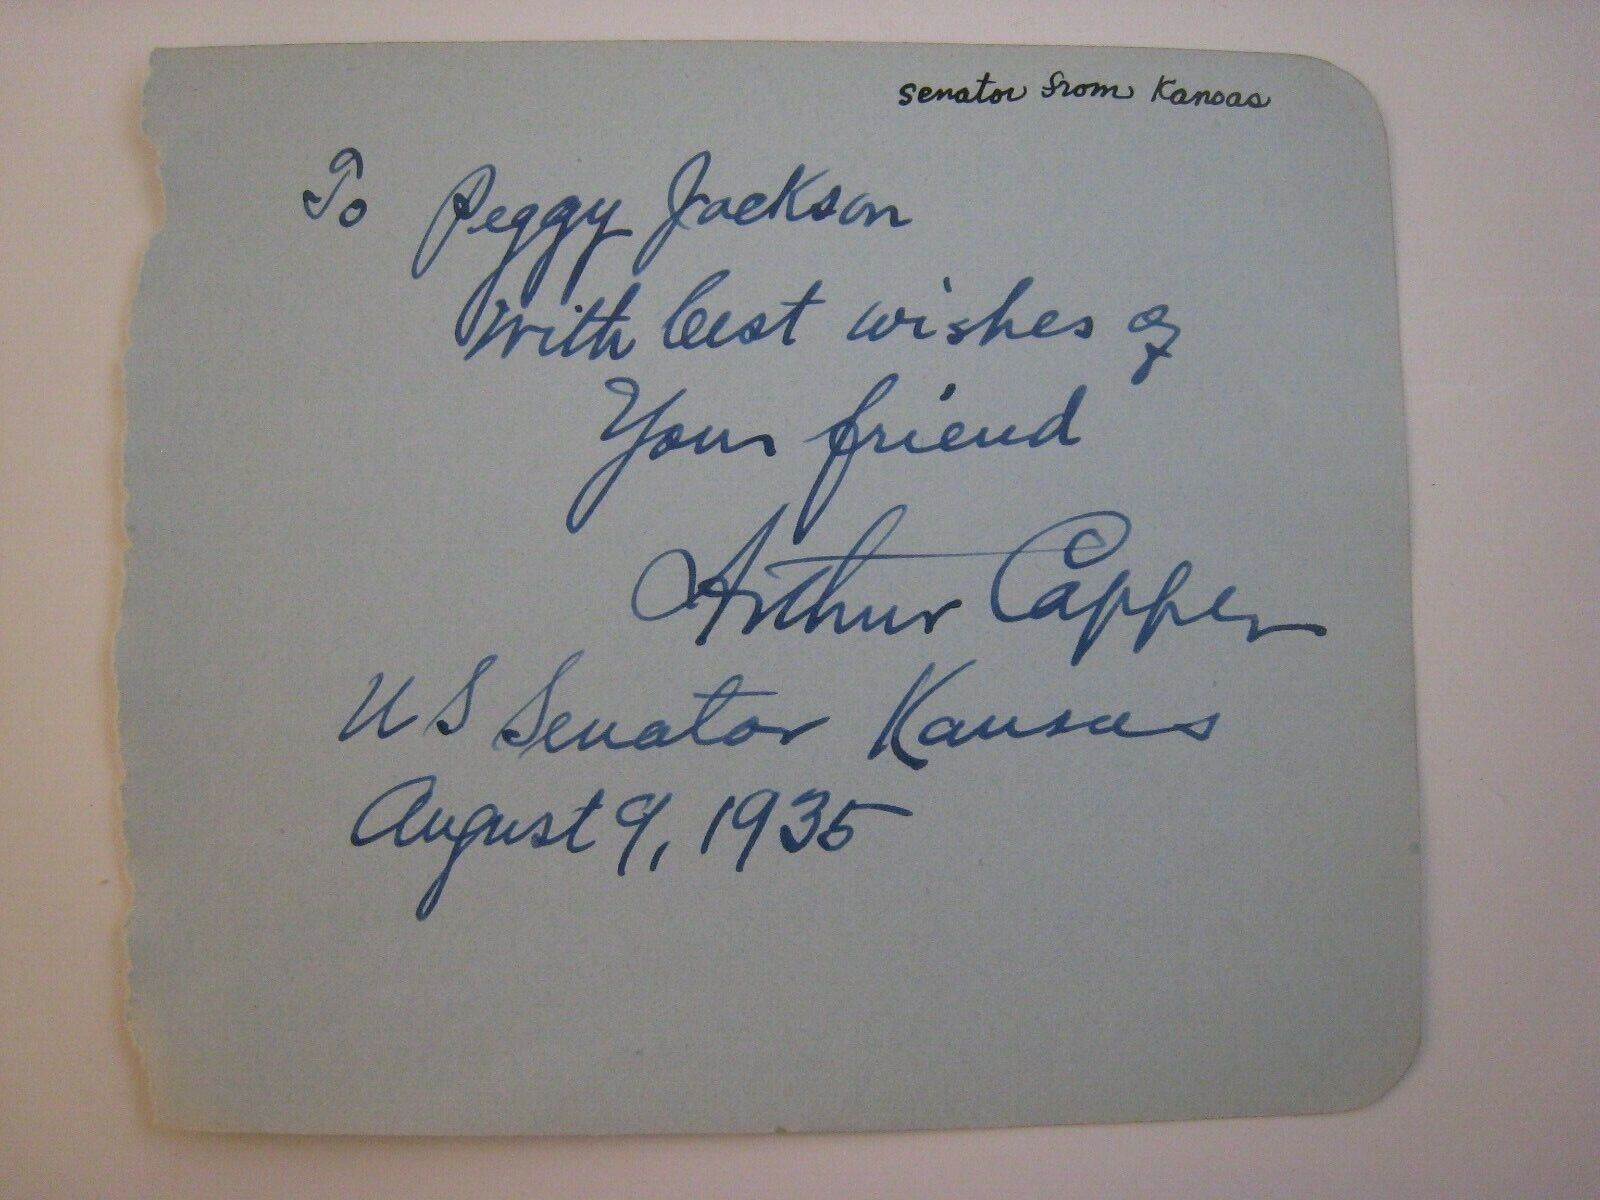 Senator from Kansas
To Peggy Jackson
With best wishes of
Your friend
Arthur Capper
U S Senator Kansas
August 9, 1935